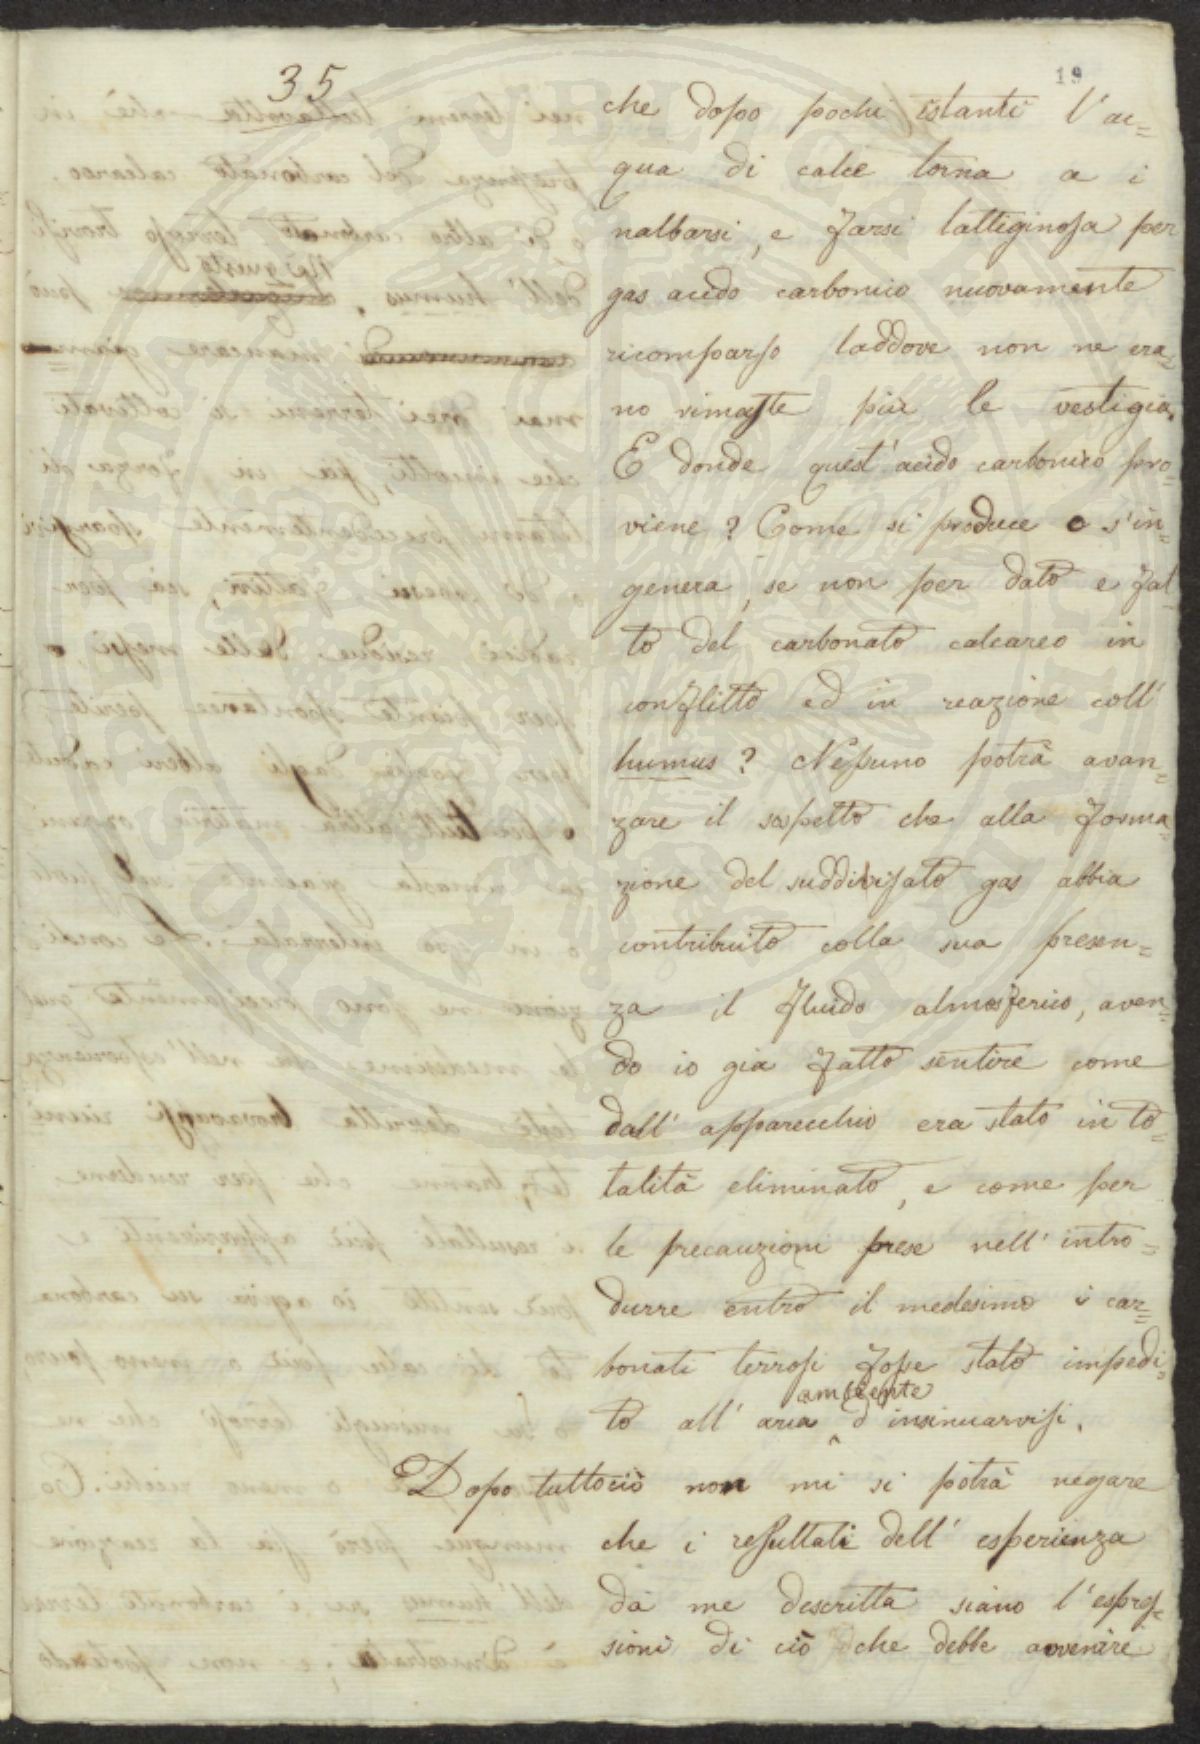 35
19
che dopo pochi istanti l'ac=
qua di calce torna a i
nalbarsi, e farsi lattiginosa per
gas acido carbonico nuovamente
ricomparso laddove non ne era=
no rimaste più le vestigia.
E donde quest'acido carbonico pro=
viene? Come si produce o s'in=
genera, se non per dato e fat=
to del carbonato calcareo in
conflitto ed in reazione coll'
humus? Nessuno potrà avan=
zare il sospetto che alla forma=
zione del suddivisato gas abbia
contribuito colla sua presen=
za il fluido atmosferico, aven=
do io già fatto sentire come
dall'apparecchio era stato in to=
talità eliminato, e come per
le precauzioni prese nell'intro=
durre entro il medesimo i car=
bonati terrosi fosse stato impedi=
ambiente
to all'aria d'insinuarvisi.
Dopo tuttociò non mi si potrà negare
che i resultati dell'esperienza
da me descritta siano l'espres=
sioni di ciò che debbe avvenire